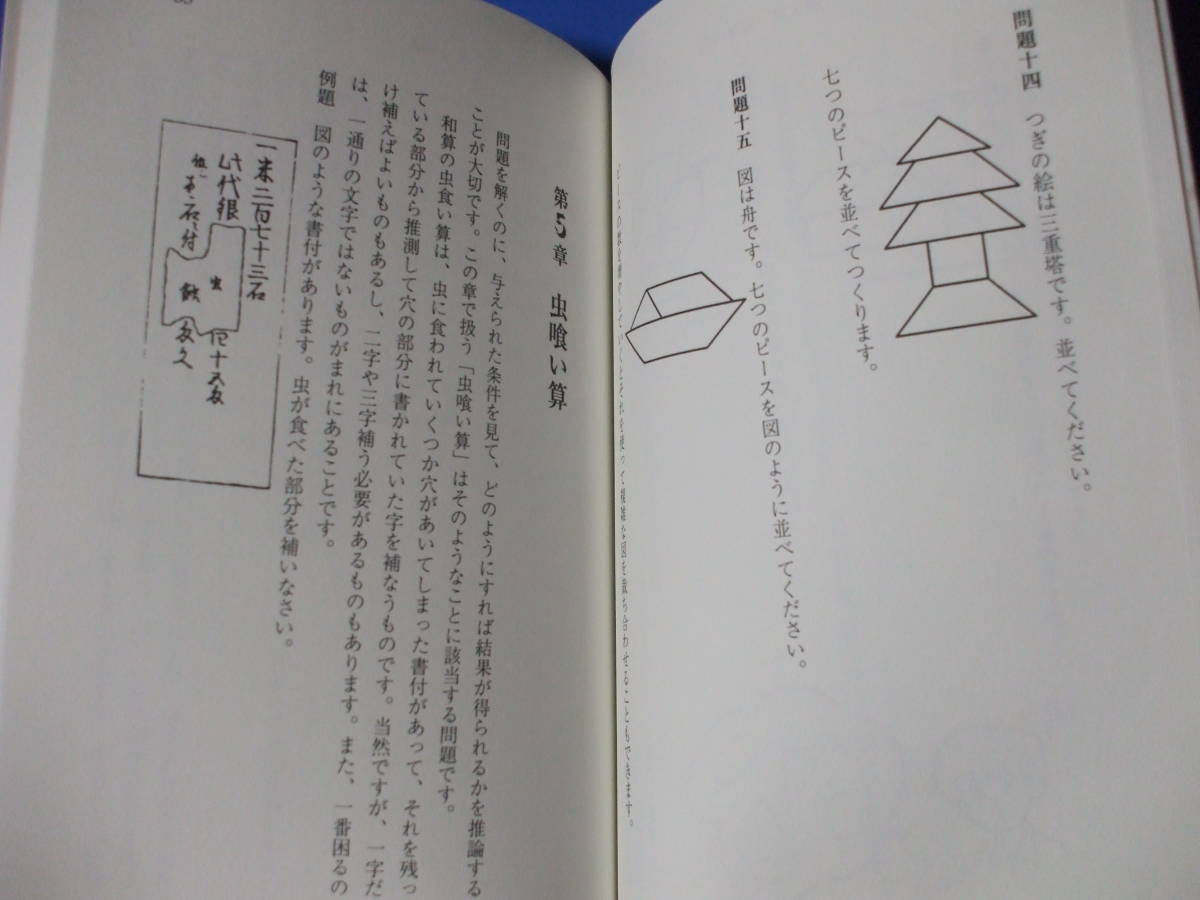 問題十四　つぎの絵は三重塔です。並べてください。
七つのピースを並べてつくります。
問題十五　図は舟です。七つのピースを図のように並べてください。
ピースの数を増やしていくとそれを使って複雑な図を裁ち合わせることもできます。
第5章　虫喰い算
問題を解くのに、与えられた条件を見て、どのようにすれば結果が得られるかを推論する
ことが大切です。この章で扱う「虫喰い算」はそのようなことに該当する問題です。
和算の虫食い算は、虫に食われていくつか穴があいてしまった書付があって、それを残っ
ている部分から推測して穴の部分に書かれていた字を補なうものです。当然ですが、一字だ
け補えばよいものもあるし、二字や三字補う必要があるものもあります。また、一番困るの
は、一通りの文字ではないものがまれにあることです。
例題　図のような書付があります。虫が食べた部分を補いなさい。
一米二百七十三石
代銀
虫
蝕